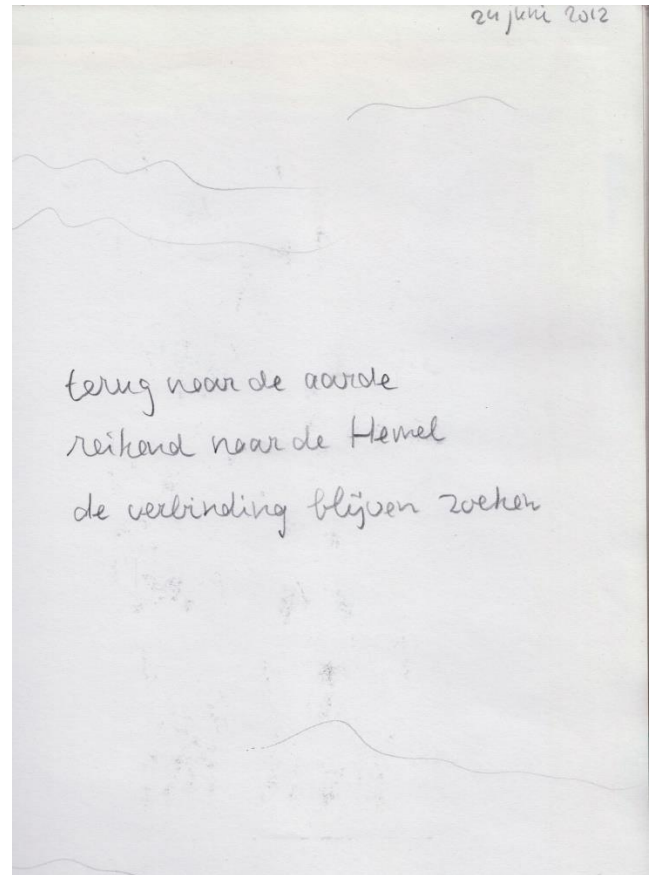 24 juni 2012
terug naar de aarde
reikend naar de Hemel
de verbinding blijven zoeken